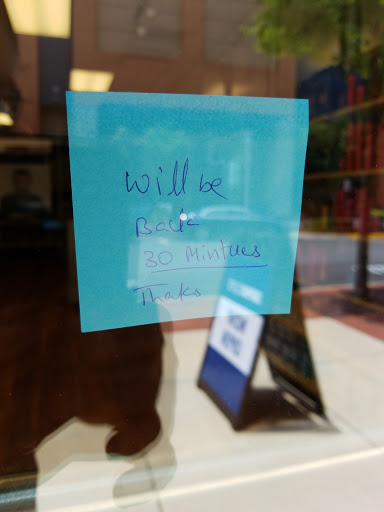 Will be
Back
30 Mintues
Thaks